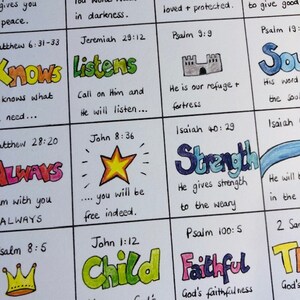 gives you
peace.
in darkness.
loved + protected.
to give good
Matthew 6:31-33
Knows
knows what
need...
Jeremiah 29:12
Listens
Call on Him and
He will listen...
Psalm 9:9
He is our refuge +
fortress
Psalm 19:
Sou
His word
the soul
Matthew 28:20
Always
am with you
ALWAYS
John 8:36
.... you will be
free indeed.
Isaiah 40:29
Strength
He gives strength
to the weary
Isaiah
He will b
in the
Psalm 8:5
John 1:12
Child
God's
Psalm 100:5
Faithful
God's faithfulness
2 Sam
Th
God's